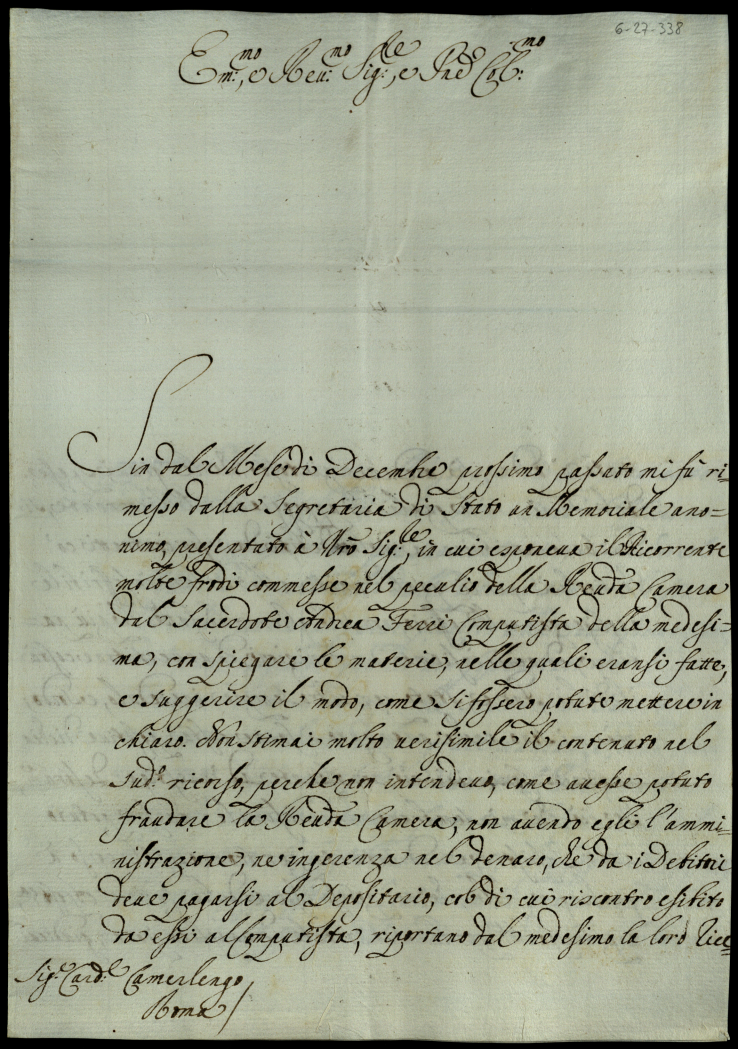 6-27-338
Em.mo, e Reu.mo Sig.re, e Pad Col.mo
Sin dal Mese di Decembre prossimo passato mi fù ri=
messo dalla Segretaria di Stato un Memoriale ano=
nimo, presentato à Nro Sig.re, in cui esponeua il Ricorrente
molte frodi commesse nel peculio della Reuda Camera
dal Sacerdote Andrea Ferri Computista della medesi=
ma, con spiegare le materie, nelle quali eransi fatte,
e suggerire il modo, come si fossero potute mettere in
chiaro. Non stimai molto uerisimile il contenuto nel
sud.o ricorso, perche non intendeuo, come auesse potuto
fraudare la Reuda Camera, non auendo egli l'ammi=
nistrazione, ne ingerenza nel denaro, che da i Debitori
deue pagarsi al Depositario, col di cui riscontro esibito
da essi al Computista, riportano dal medesimo la loro Rice=
Sig.e Card.le Camerlengo
Roma /